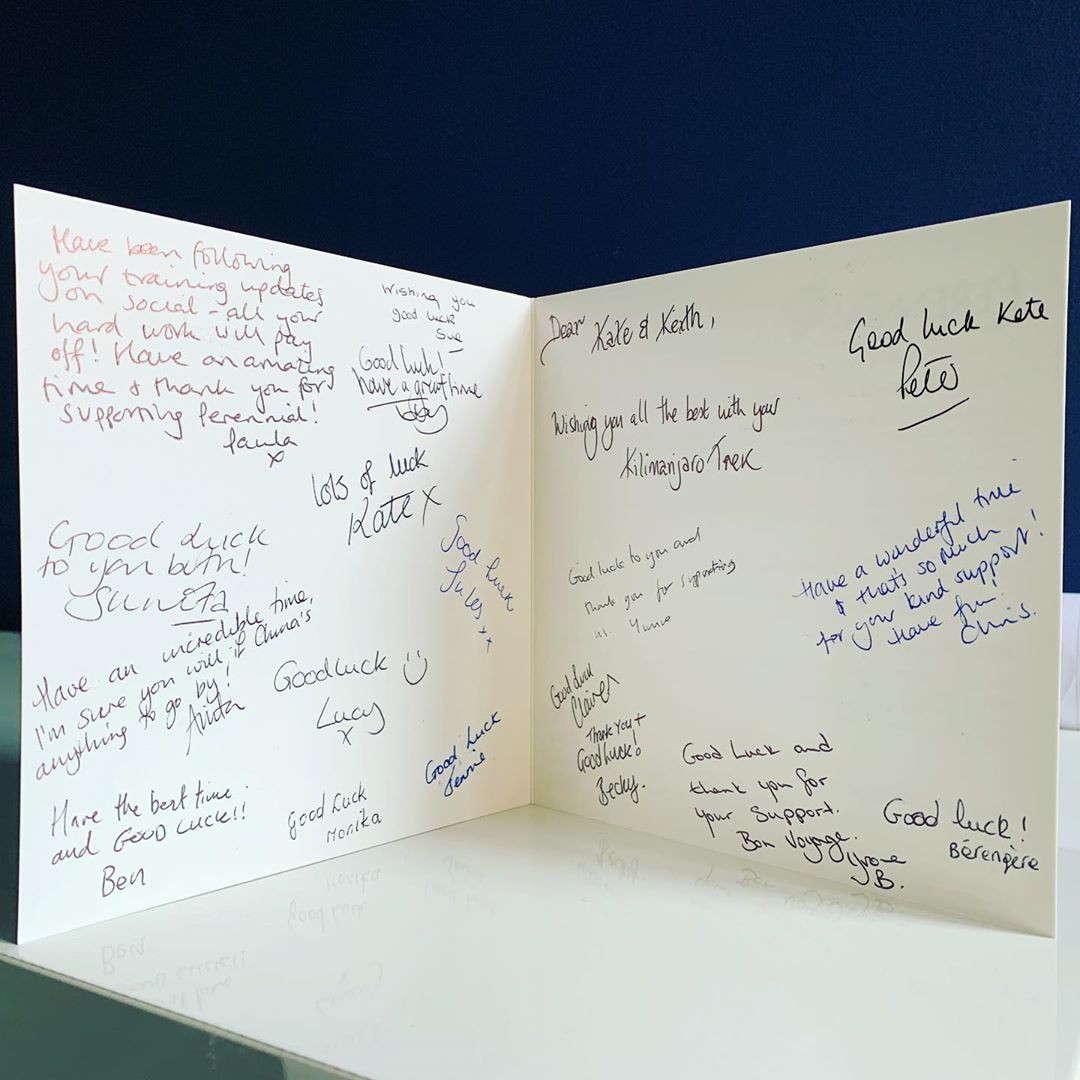 Have been following
your training updates
on social - all your
hard work will pay
off! Have an amazing
time & thank you for
supporting Perennial!
Paula
x
Wishing you
good luck
Sue
Good luck!
have a great time
Lots of luck
Kate x
Good Luck
to you both!
Sunita
Good Luck
Jules xx
Have an incredible time,
I'm sure you will if China's
anything to go by!
Anita
Good Luck
Lucy
x
Good Luck
Jennie
Have the best time
and GOOD LUCK!!
Ben
Good Luck
Monika
Dear Kate & Keith,
Wishing you all the best with your
Kilimanjaro Trek
Good luck Kate
Pete
Good luck to you and
thank you for supporting
us.
Have a wonderful time
& thats so much
for your kind support!
Have fun!
Chris.
Good luck
Claire
Thank You +
Good luck!
Becky.
Good Luck and
thank you for
your Support.
Bon Voyage.
B.
Good luck!
Bérengère